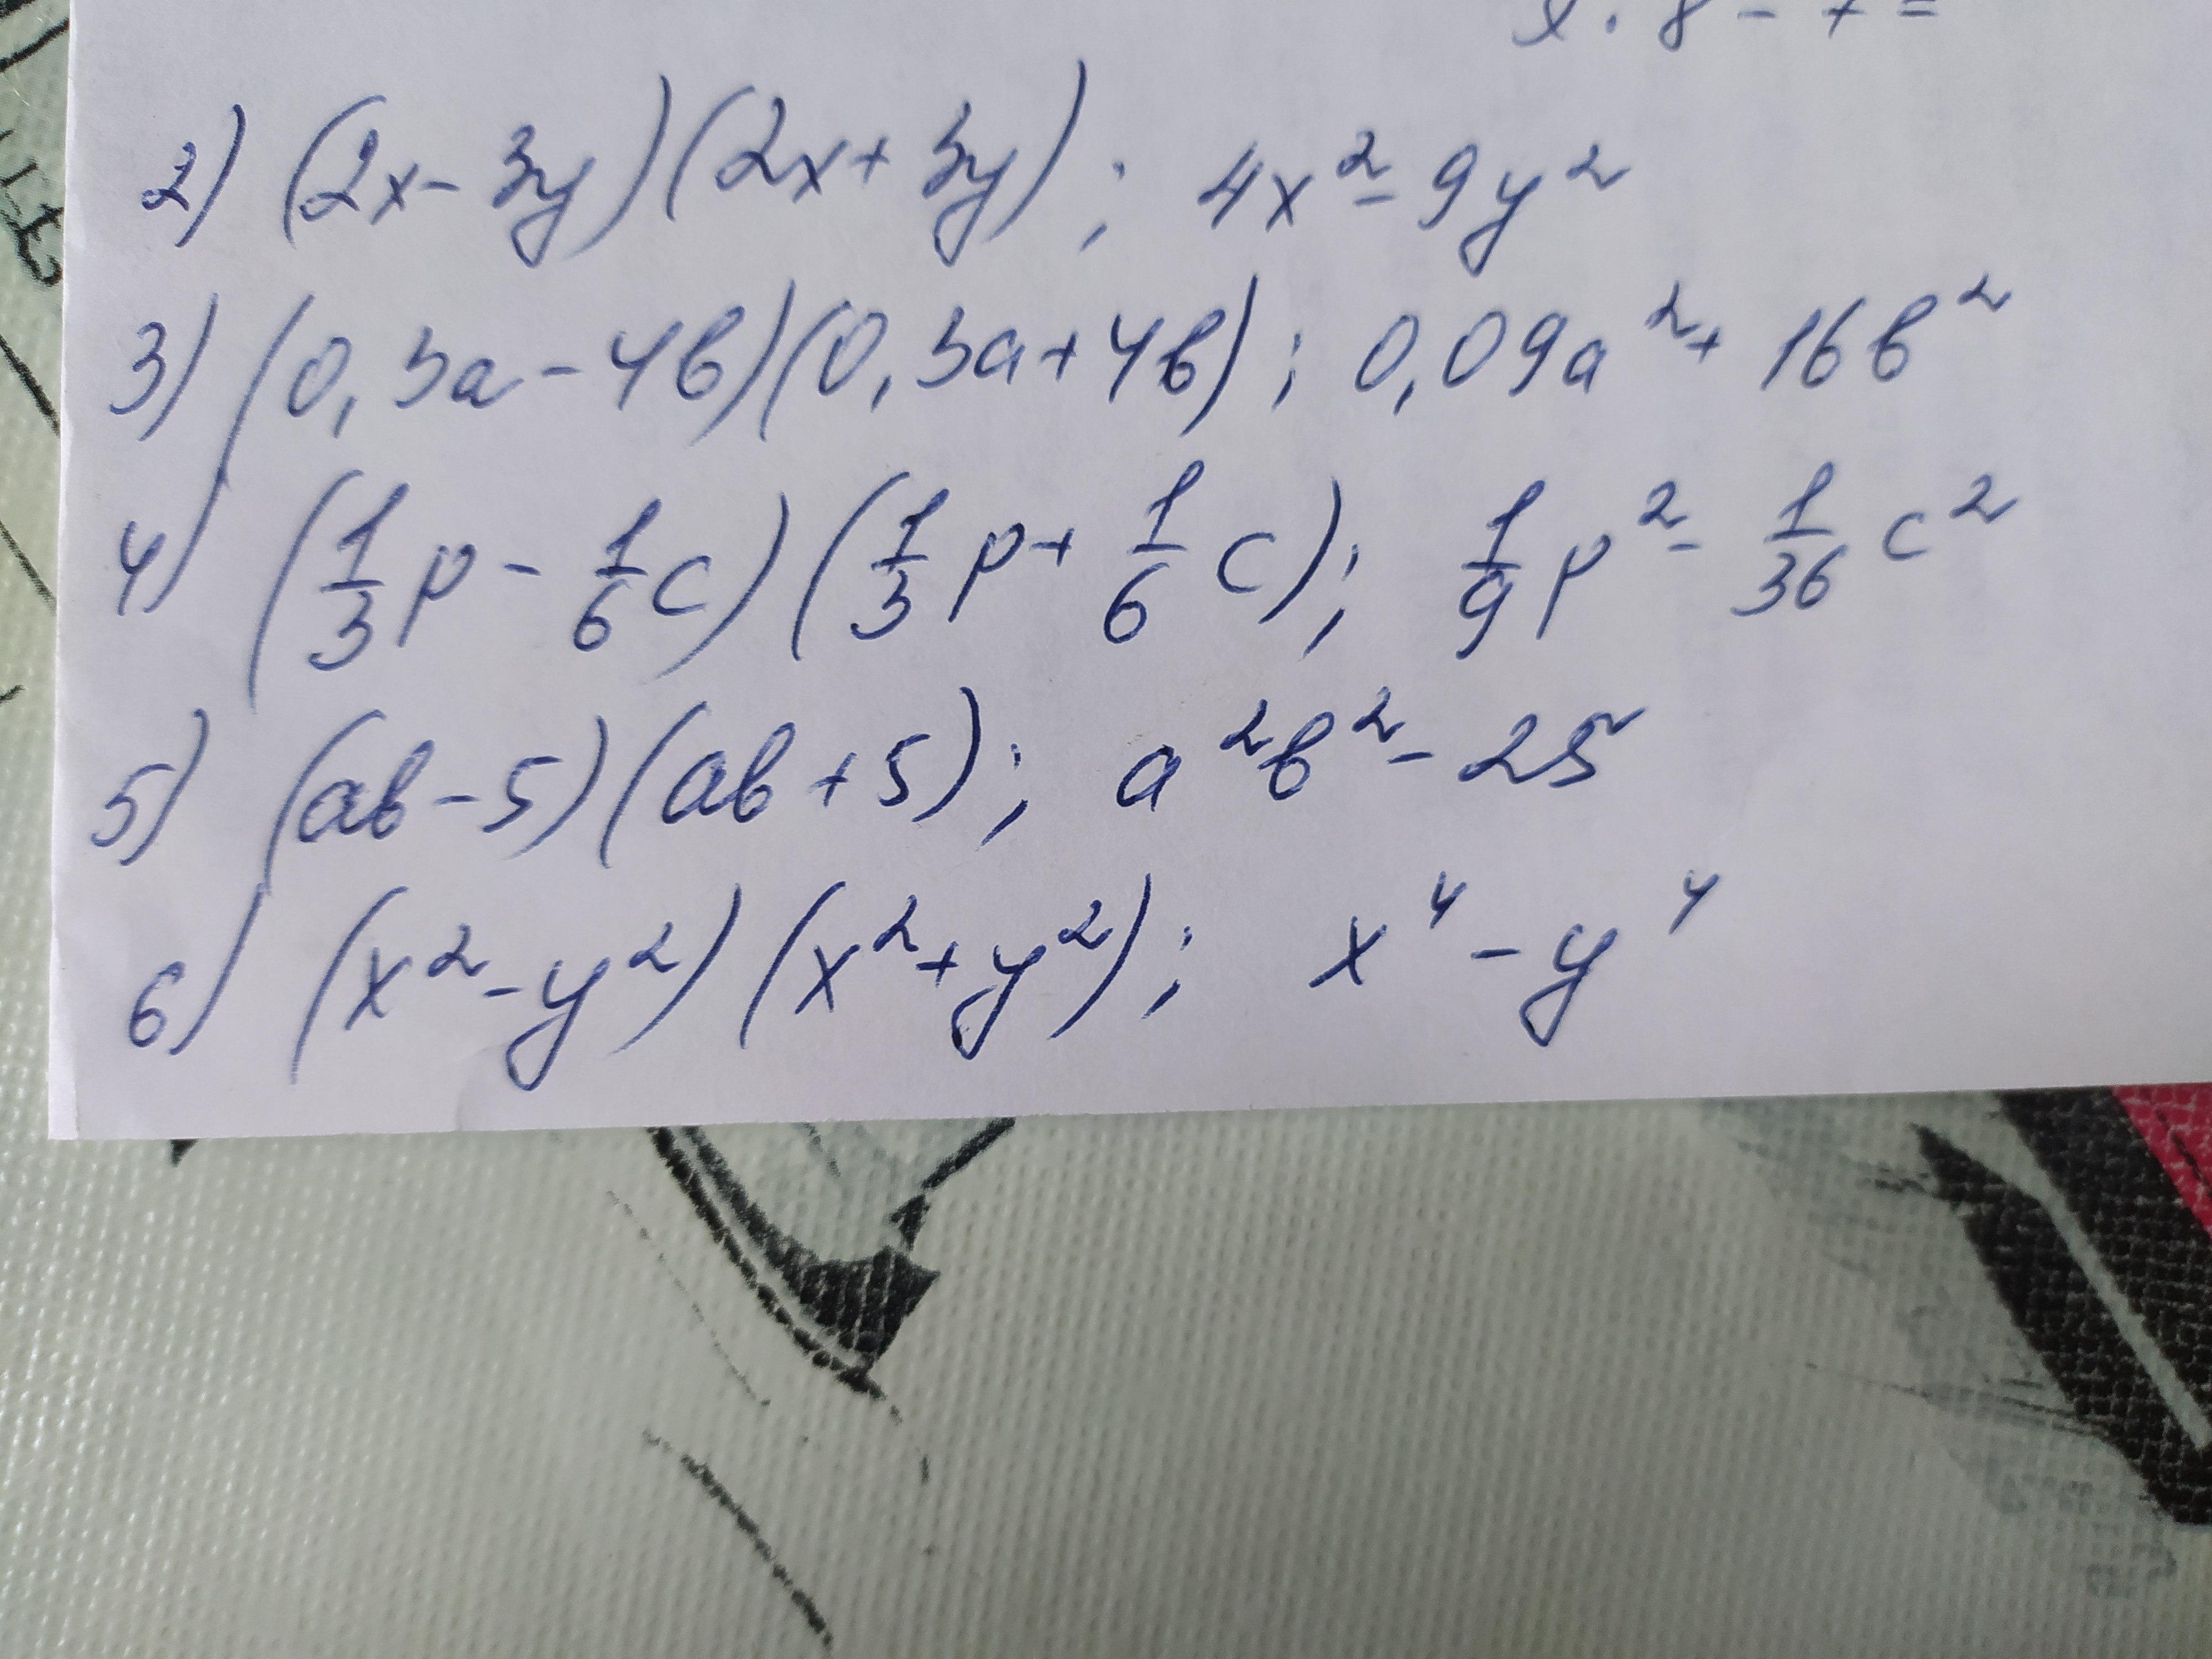 x · 8 - 7 =
2) (2x - 3y)(2x + 3y); 4x² - 9y²
3) (0,3a - 4b)(0,3a + 4b); 0,09a² + 16b²
4) (1/3 p - 1/6 c)(1/3 p + 1/6 c); 1/9 p² - 1/36 c²
5) (ab - 5)(ab + 5); a²b² - 25
6) (x² - y²)(x² + y²); x⁴ - y⁴